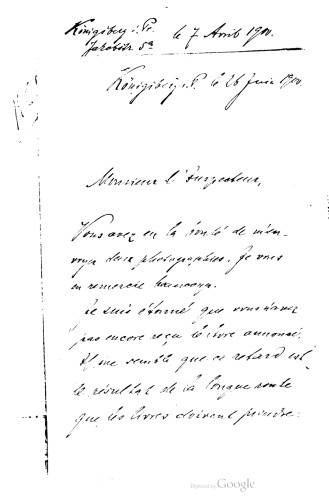 Königsberg i. Pr. le 7 Avril 1900.
Jakobstr. 5a
Königsberg i. P. le 26 Juin 1900
Monsieur l'Inspecteur,
Vous avez eu la bonté de m'en-
voyer deux photographies. Je vous
en remercie beaucoup.
Je suis étonné que vous n'avez
pas encore reçu le livre annoncé.
Il me semble que ce retard est
le résultat de la longue route
que les livres doivent prendre.
Digitized by Google